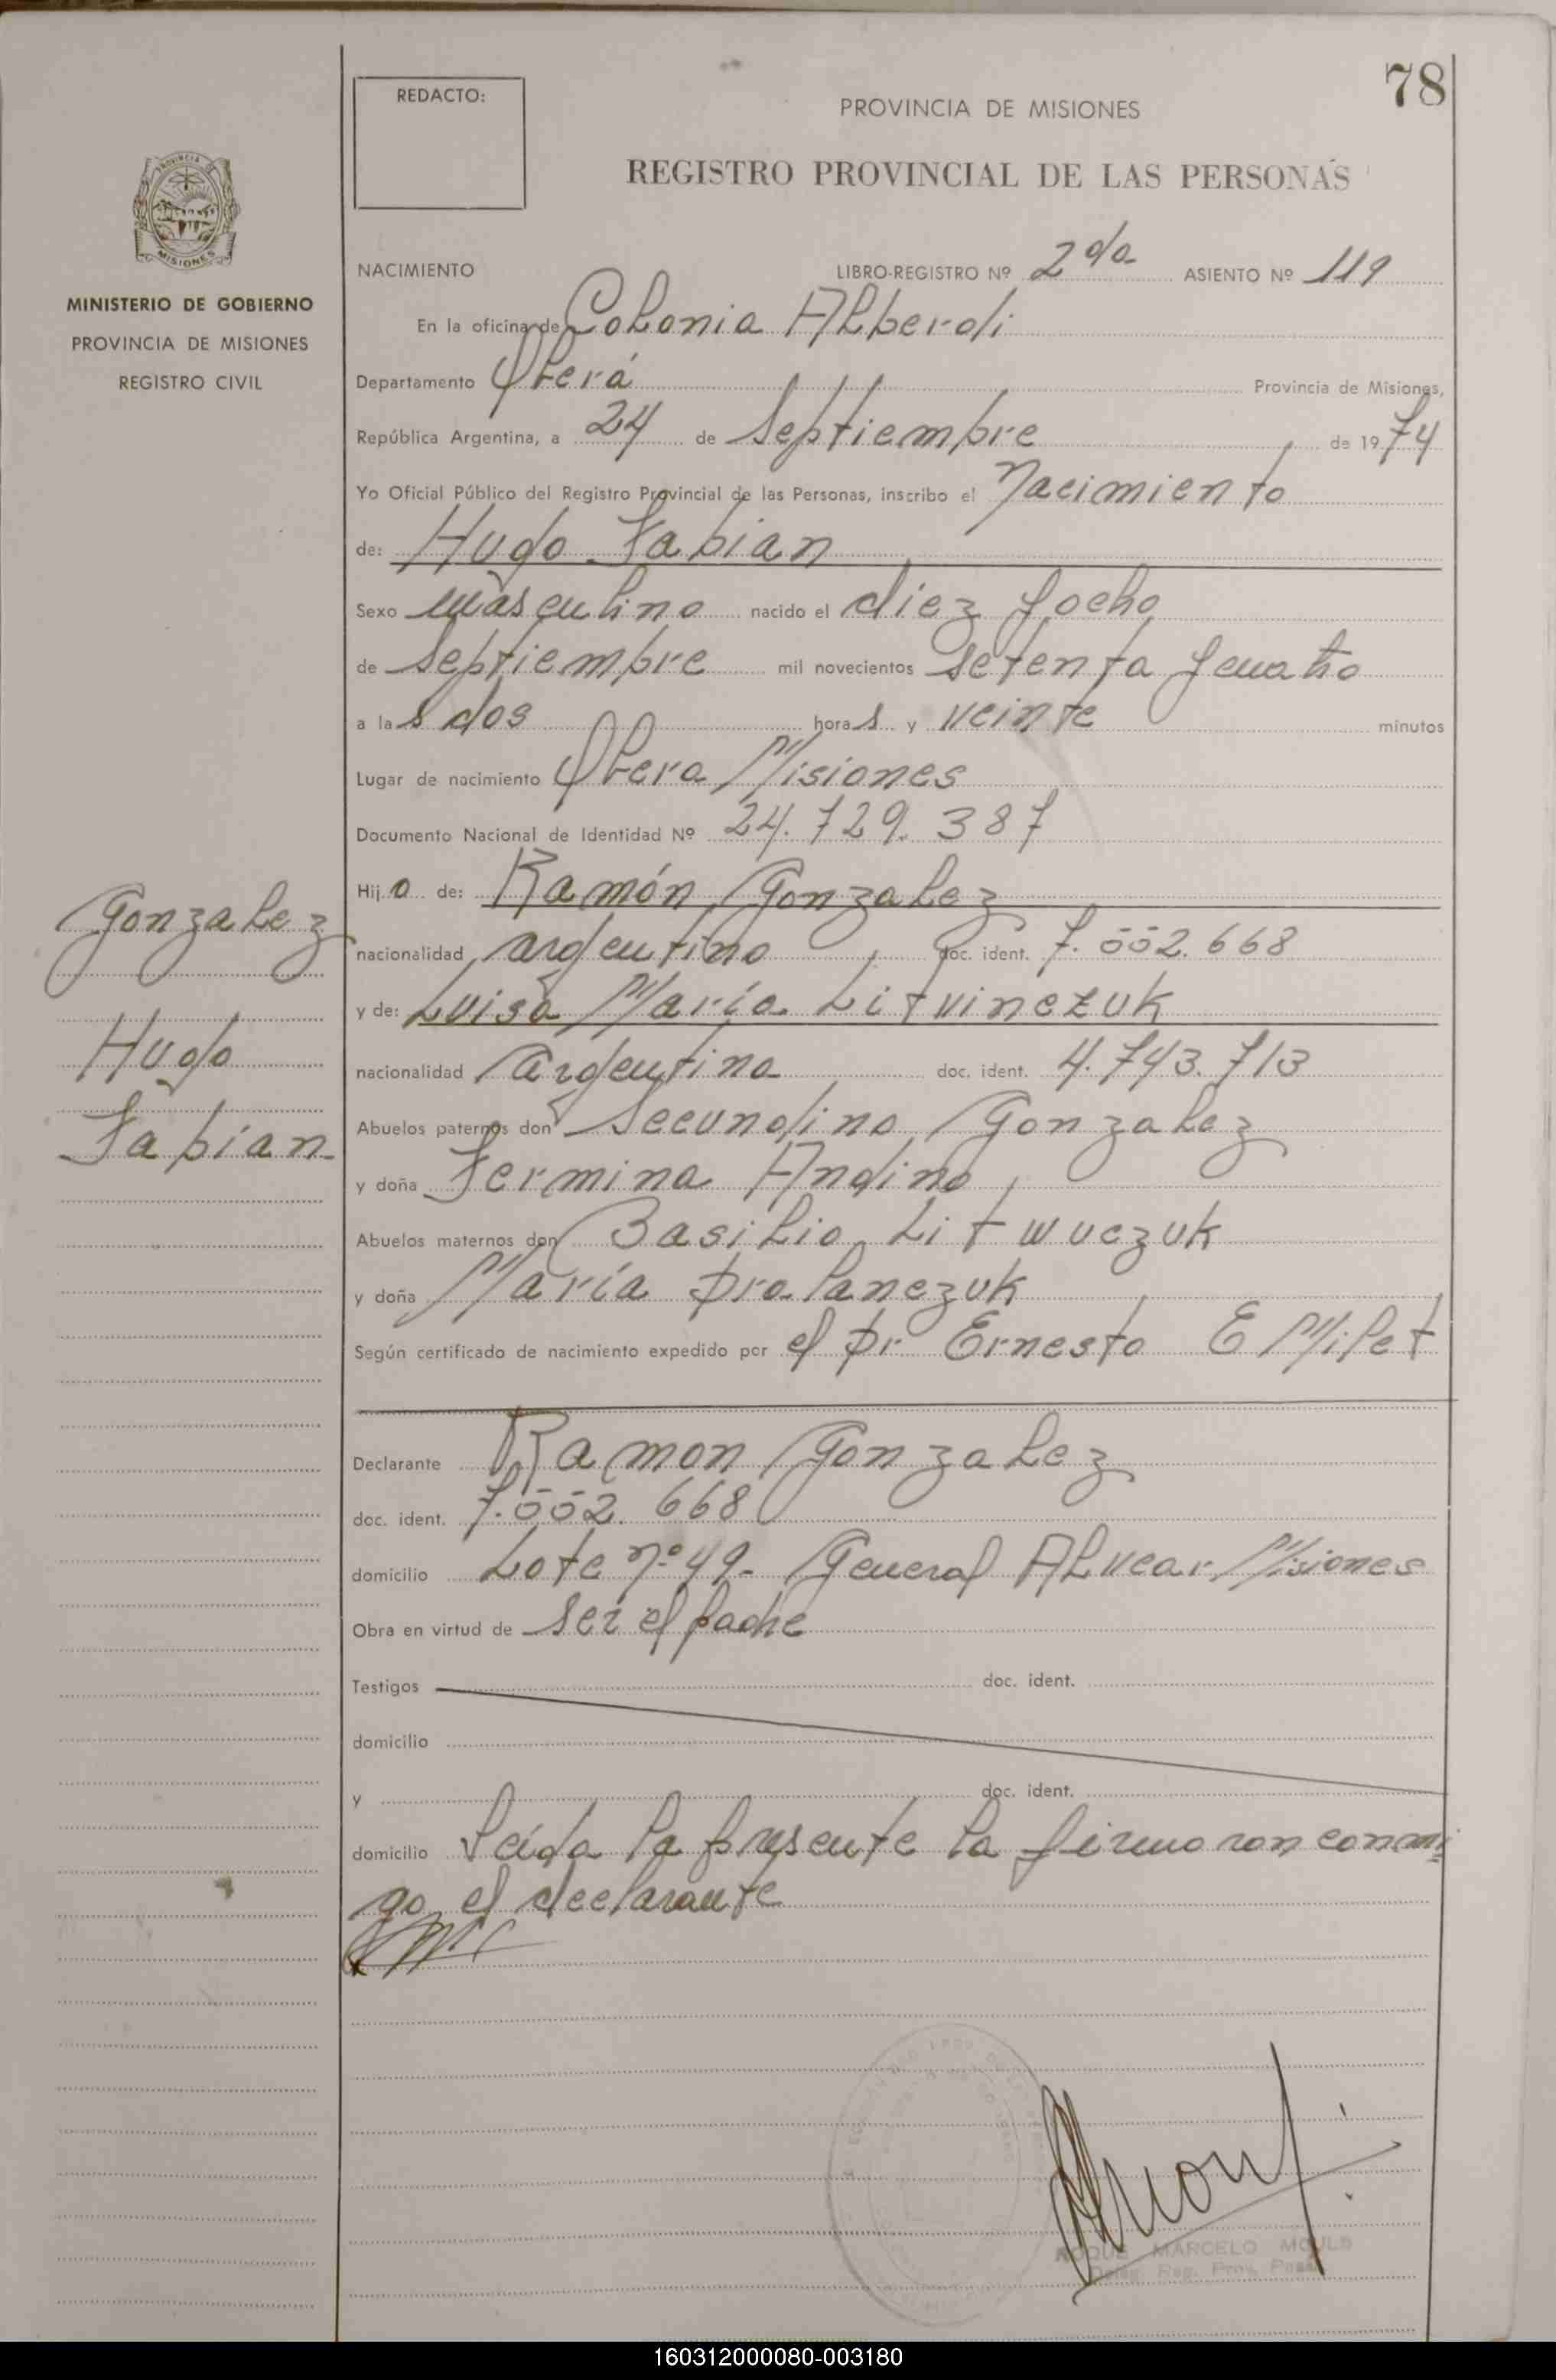 78
REDACTO:
PROVINCIA DE MISIONES
REGISTRO PROVINCIAL DE LAS PERSONAS
MINISTERIO DE GOBIERNO
PROVINCIA DE MISIONES
REGISTRO CIVIL
NACIMIENTO LIBRO-REGISTRO Nº 2da ASIENTO Nº 119
En la oficina de Colonia Alberdi
Departamento Oberá Provincia de Misiones,
República Argentina, a 24 de Septiembre de 1974
Yo Oficial Público del Registro Provincial de las Personas, inscribo el Nacimiento
de: Hugo Fabian
Sexo masculino nacido el diez y ocho
de Septiembre mil novecientos setenta y cuatro
a las dos horas y veinte minutos
Lugar de nacimiento Obera Misiones
Documento Nacional de Identidad Nº 24.729.387
Hijo de: Ramón Gonzalez
nacionalidad argentino doc. ident. 7.552.668
y de: Luisa María Litvinczuk
nacionalidad argentina doc. ident. 4.743.713
Abuelos paternos don Secundino Gonzalez
y doña Fermina Andino
Abuelos maternos don Basilio Litwuczuk
y doña María
Según certificado de nacimiento expedido por el Dr Ernesto E Milet
Gonzalez
Hugo
Fabian
Declarante Ramon Gonzalez
doc. ident. 7.552.668
domicilio Lote nº 49- General Alvear Misiones
Obra en virtud de ser el padre
Testigos doc. ident.
domicilio
y doc. ident.
domicilio Leída la presente la firmaron conmi
go el declarante
ROQUE MARCELO MOULS
Deleg. Reg. Prov. Pers.
160312000080-003180